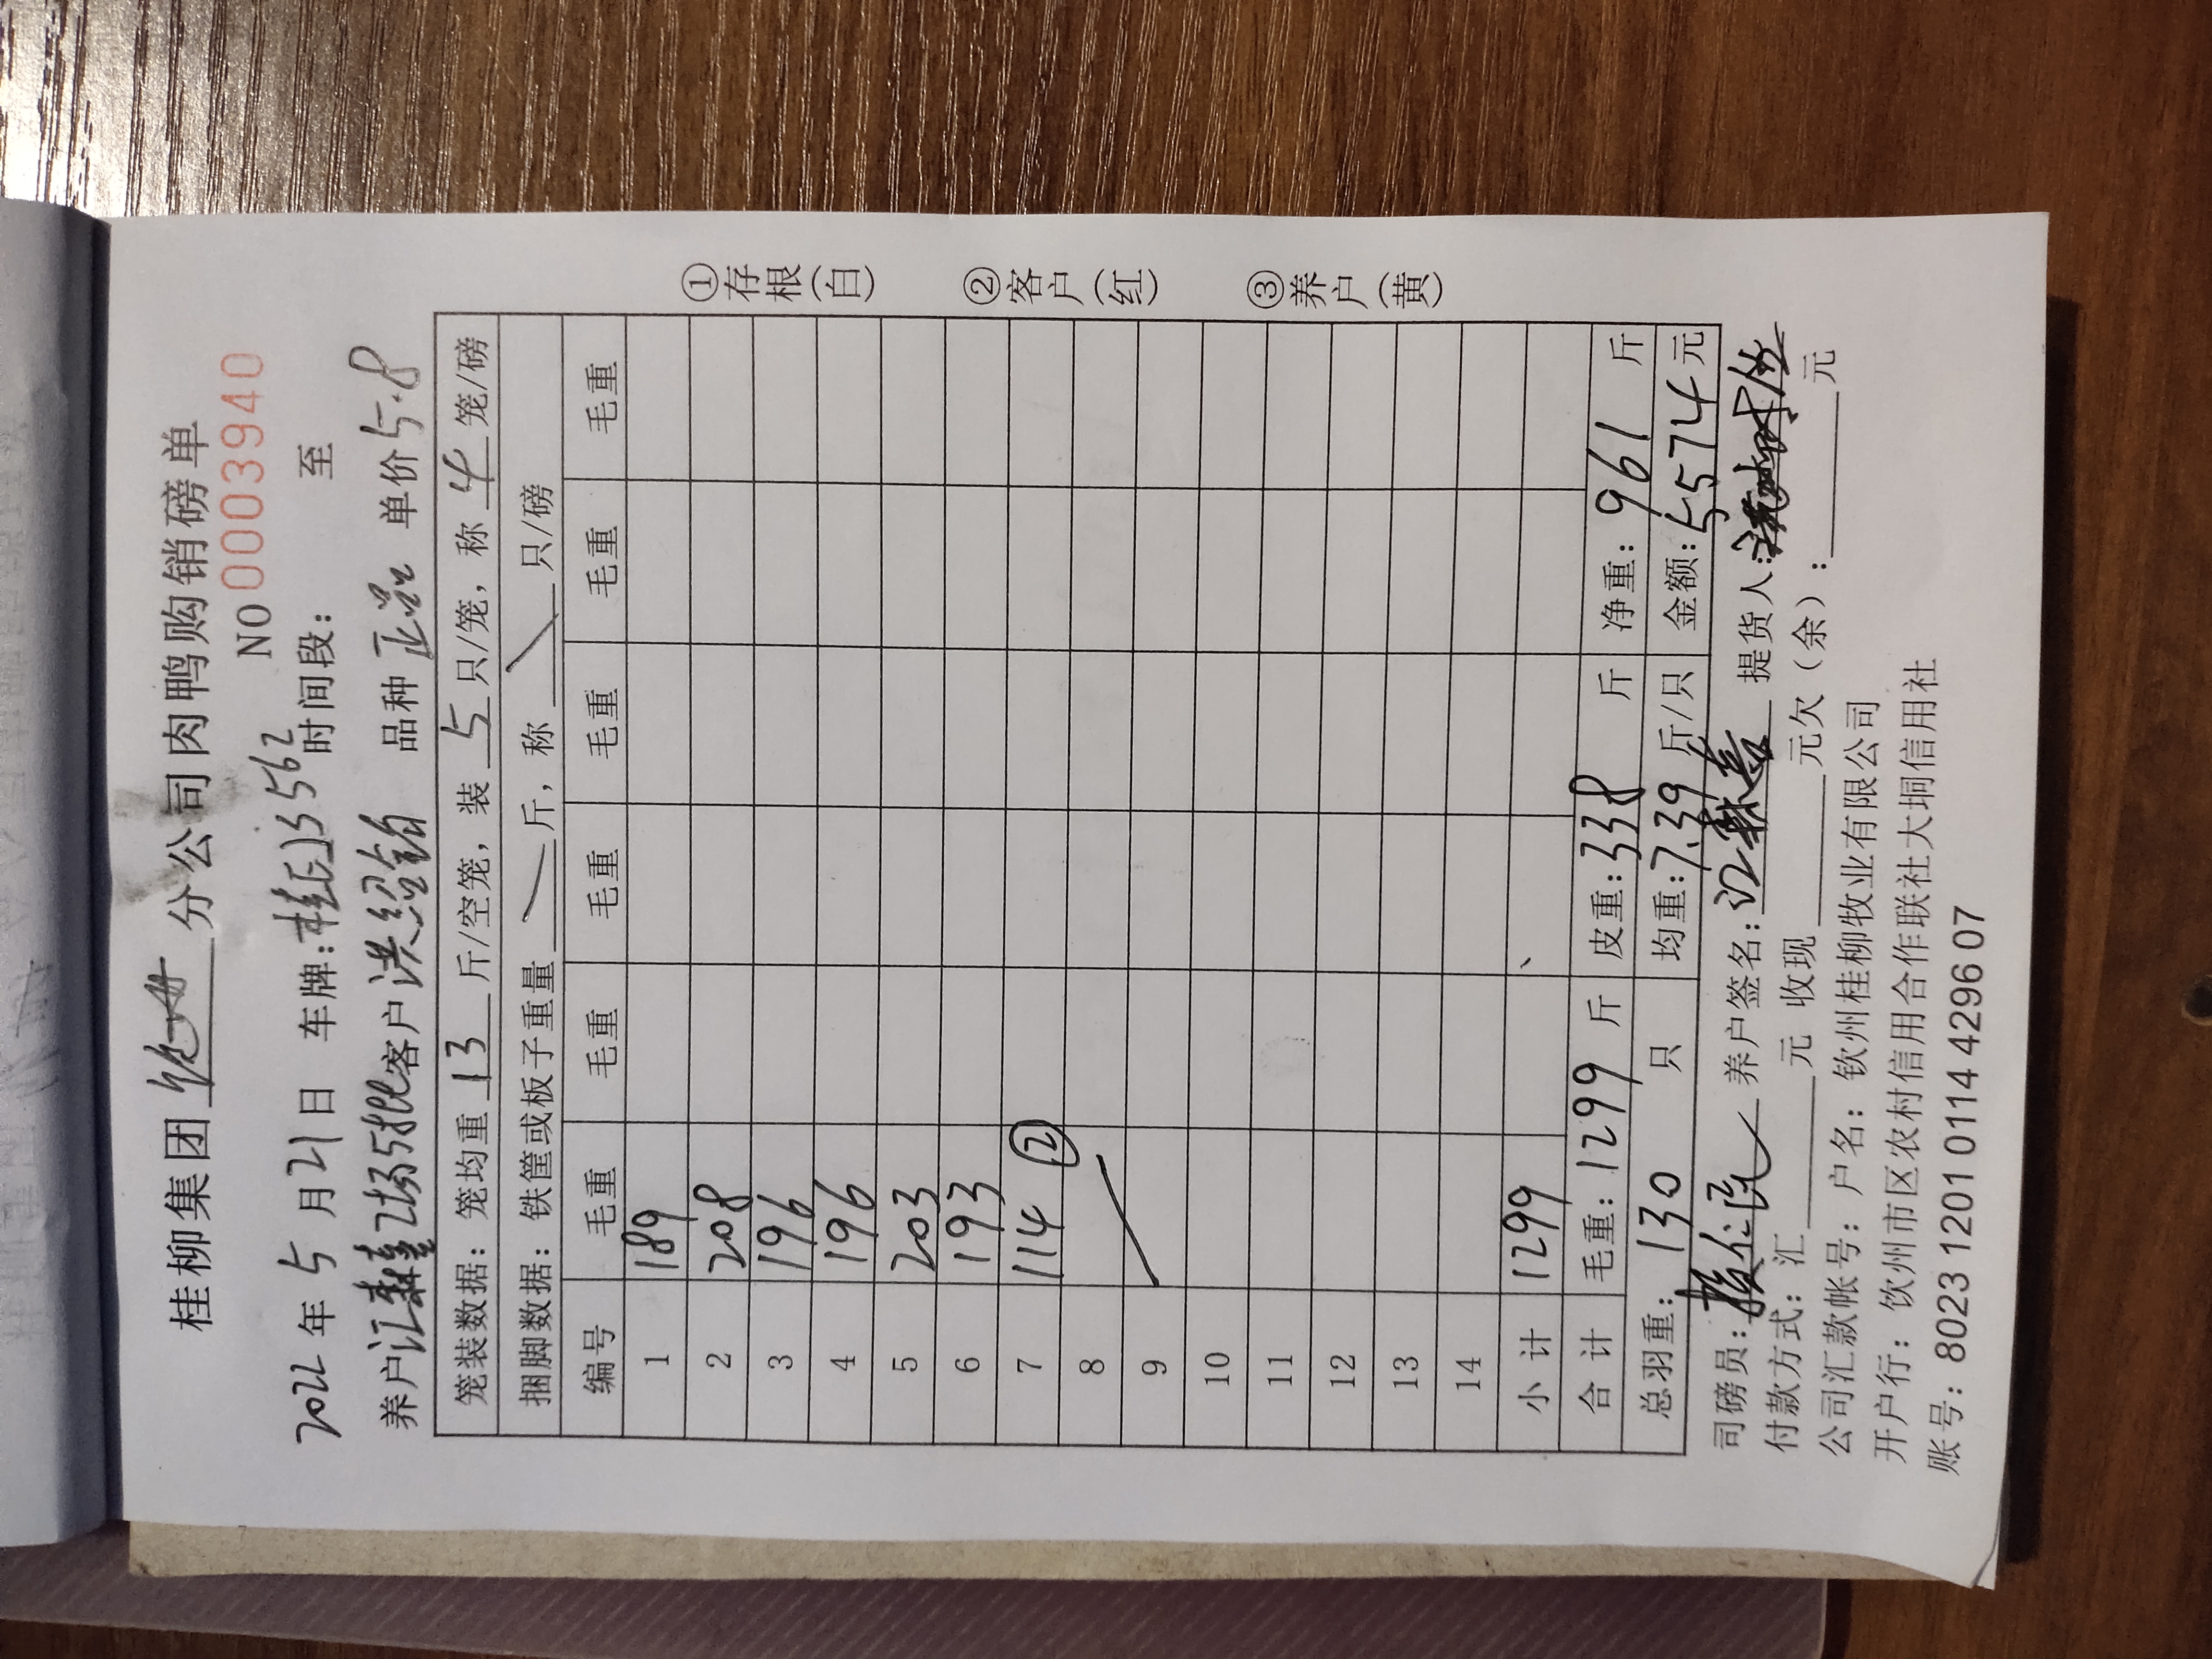 桂柳集团 分公司肉鸭购销磅单
NO 0003940
2022年5月21日 车牌: 5562 时间段: 至
养户汪森鑫2场35批 客户洪绍钧 品种正品 单价5.8
笼装数据: 笼均重 13 斤/空笼, 装 5 只/笼, 称 4 笼/磅
捆脚数据: 铁筐或板子重量 斤, 称 只/磅
编号 毛重 毛重 毛重 毛重 毛重 毛重
1 189
2 208
3 196
4 196
5 203
6 193
7 114 ②
8
9
10
11
12
13
14
小计 1299
合计 毛重: 1299 斤 皮重: 338 斤 净重: 961 斤
总羽重: 130 只 均重: 7.39 斤/只 金额: 5574元
司磅员: 养户签名: 提货人:
付款方式: 汇 元 收现 元欠(余): 元
公司汇款帐号: 户名: 钦州桂柳牧业有限公司
开户行: 钦州市区农村信用合作联社大垌信用社
账号: 8023 1201 0114 4296 07
①存根(白)
②客户(红)
③养户(黄)